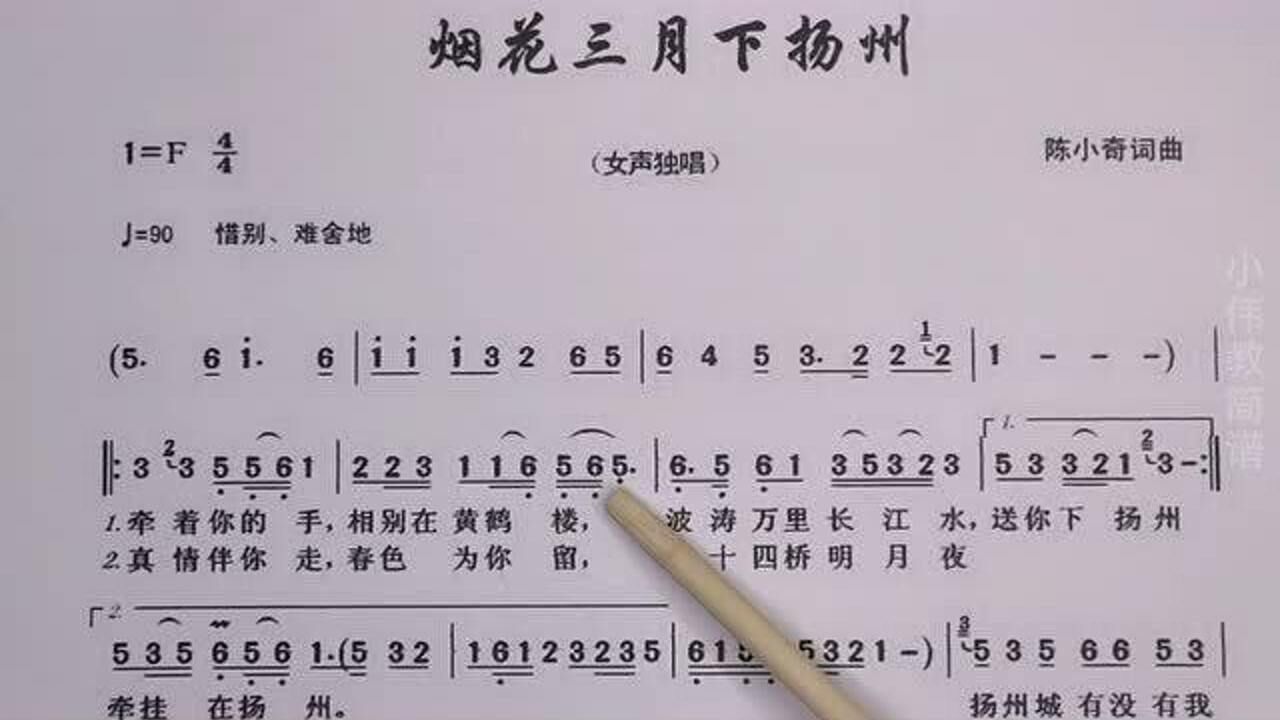 烟花三月下扬州
1=F 4/4 （女声独唱） 陈小奇词曲
♩=90 惜别、难舍地
(5. 6 i. 6 | i i i 3 2 6 5 | 6 4 5 3. 2 2 1 2 | 1 - - -) |
‖: 3 2 3 5 5 6 1 | 2 2 3 1 1 6 5 6 5. | 6. 5 6 1 3 5 3 2 3 | 1. 5 3 3 2 1 2 3 - :‖
1.牵 着你的 手,相别在 黄鹤 楼, 波 涛 万里 长 江 水,送你下 扬州
2.真 情伴你 走,春色 为你 留, 十 四桥 明 月 夜
2. 5 3 5 6 5 6 1.(5 3 2 | 1 6 1 2 3 2 3 5 | 6 1 5 5 3 2 1 -) | 3 5 3 5 6 6 5 3 |
牵挂 在扬 州。 扬州城 有没 有我
小伟教简谱